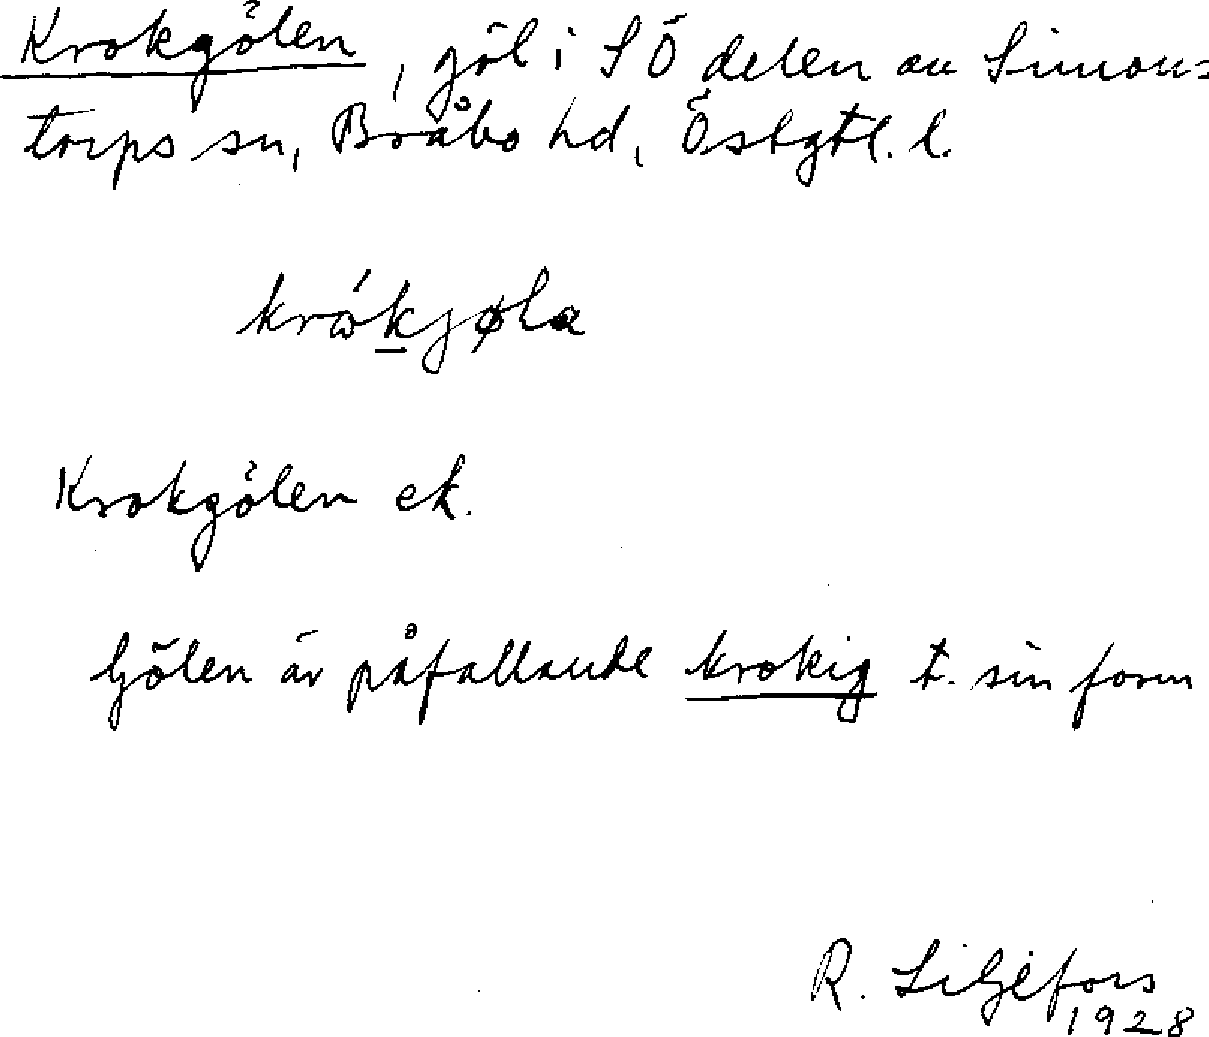 Krokgölen, göl i SÖ delen av Simons-
torps sn, Bråbo hd, Östgtl. l.
krώkjøla
Krokgölen ek.
Gölen är påfallande krokig t. sin form
R. Liljefors
1928